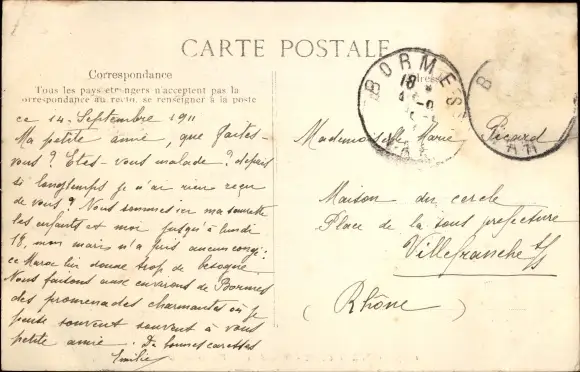 CARTE POSTALE
Correspondance
Tous les pays étrangers n'acceptent pas la
correspondance au recto, se renseigner à la poste
ce 14 Septembre 1911
Ma petite amie, que faites-
vous? Etes-vous malade? depuis
si longtemps je n'ai rien reçu
de vous? Nous sommes ici ma
les enfants et moi jusqu'à lundi
18, mon mari n'a pris aucun congé:
ce Maroc lui donne trop de besogne.
Nous faisons aux environs de Bormes
des promenades charmantes où je
pense souvent souvent à vous
petite amie. De bonnes caresses
Emilie
BORMES
18
VAR
Adresse
Mademoiselle Marie Picard
Maison du cercle
Place de la sous préfecture
Villefranche s/S
(Rhône)